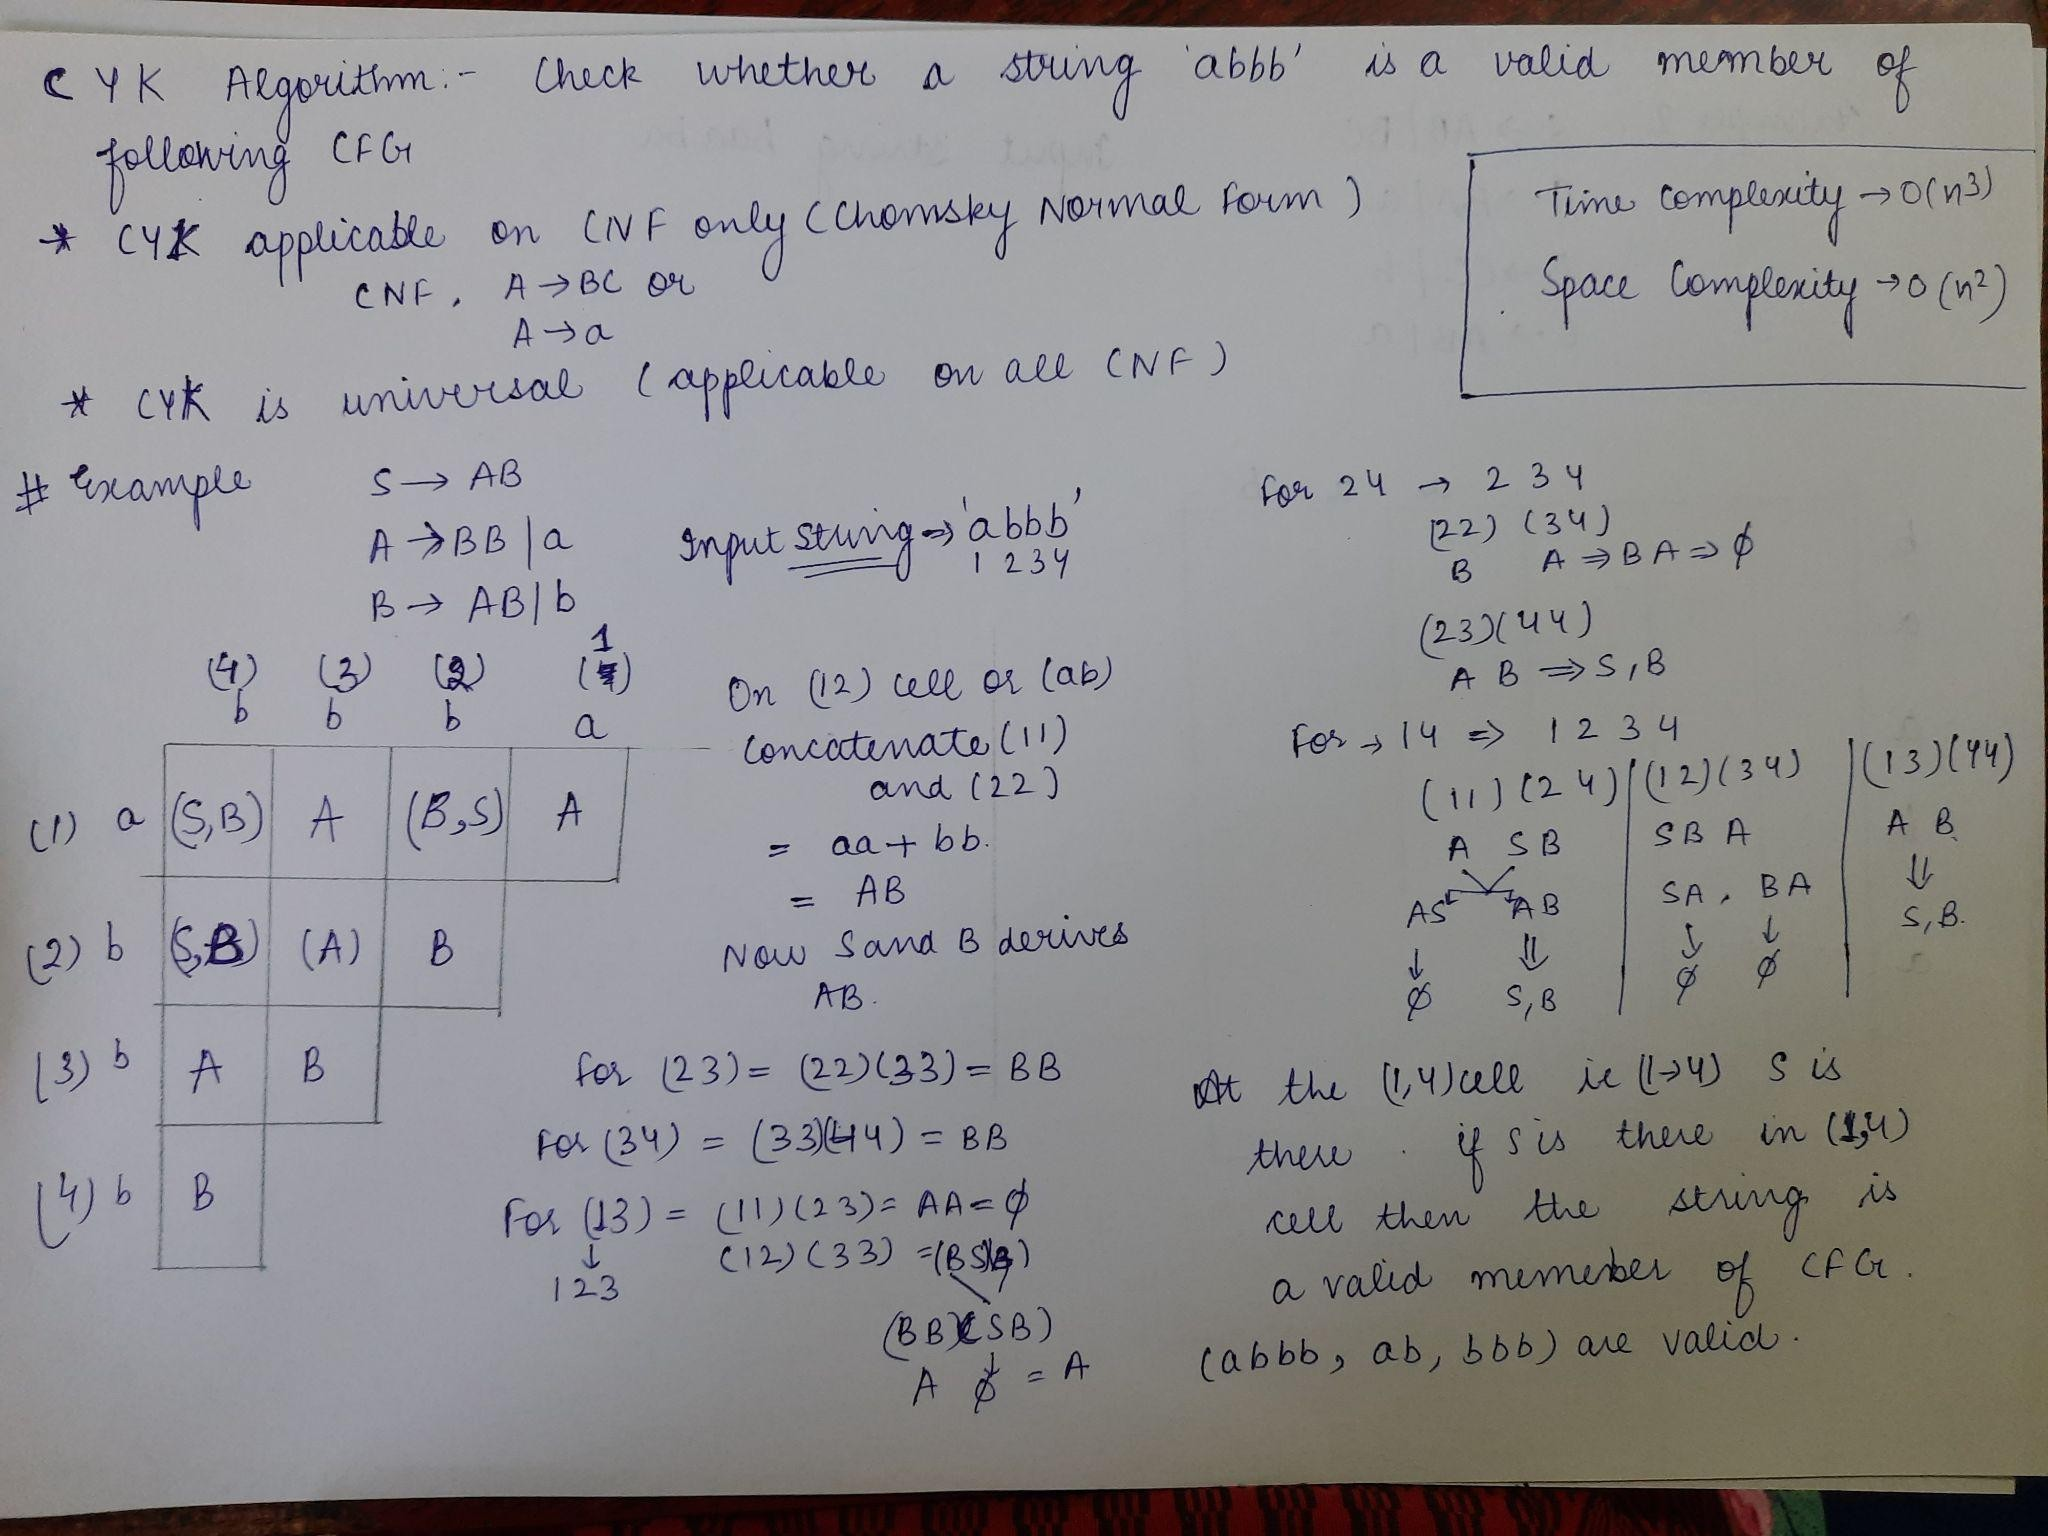 CYK Algorithm:- Check whether a string 'abbb' is a valid member of
following CFG
* CYK applicable on CNF only (Chomsky Normal Form)
CNF, A → BC or
A → a
* CYK is universal (applicable on all CNF)
Time Complexity → O(n3)
Space Complexity → O(n²)
# Example S → AB
A → BB | a
B → AB | b
Input String ⇒ 'abbb'
1 2 3 4
(4) (3) (2) (1)
b b b a
(1) a (S,B) A (B,S) A
(2) b (S,B) (A) B
(3) b A B
(4) b B
On (12) cell or (ab)
Concatenate (11)
and (22)
= aa + bb.
= AB
Now S and B derives
AB.
for (23) = (22)(33) = BB
For (34) = (33)(44) = BB
For (13) = (11)(23) = AA = ∅
↓ (12)(33) =
123
(BB)(SB)
A ∅ = A
For 24 → 2 3 4
(22) (34)
B A ⇒ BA ⇒ ∅
(23)(44)
A B ⇒ S, B
For → 14 ⇒ 1 2 3 4
(11)(24) | (12)(34) | (13)(44)
A SB SB A A B
AS AB SA, BA ⇓
↓ ⇓ ↓ ↓ S,B.
∅ S,B ∅ ∅
At the (1,4) cell ie (1→4) S is
there. if S is there in (1,4)
cell then the string is
a valid memember of CFG.
(abbb, ab, bbb) are valid.